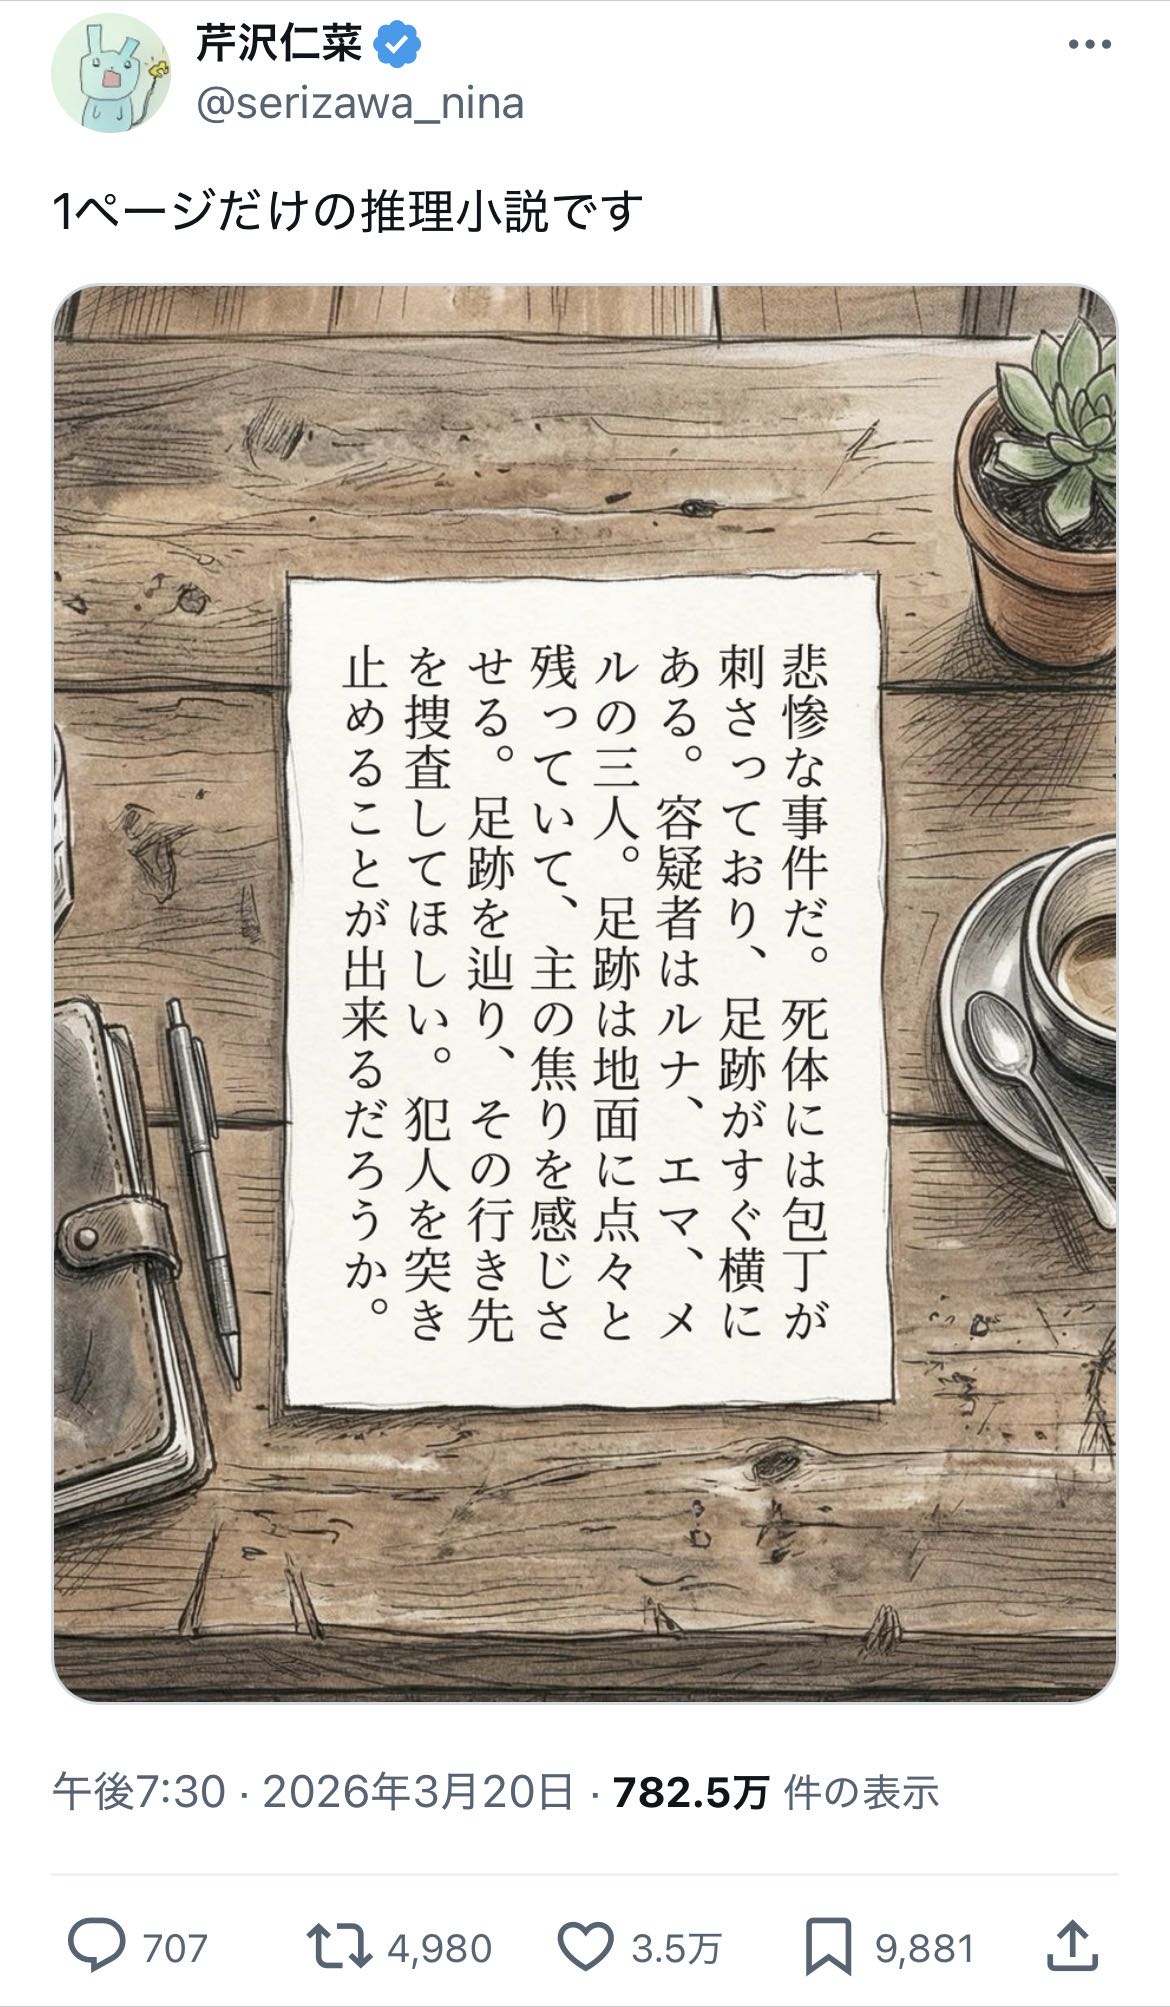 芹沢仁菜
@serizawa_nina
1ページだけの推理小説です
悲惨な事件だ。死体には包丁が
刺さっており、足跡がすぐ横に
ある。容疑者はルナ、エマ、メ
ルの三人。足跡は地面に点々と
残っていて、主の焦りを感じさ
せる。足跡を辿り、その行き先
を捜査してほしい。犯人を突き
止めることが出来るだろうか。
午後7:30 · 2026年3月20日 · 782.5万 件の表示
707 4,980 3.5万 9,881